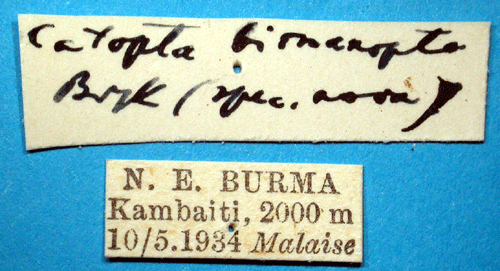 Catopta birmanopta
Bryk (spec. nova)
N. E. BURMA
Kambaiti, 2000 m
10/5.1934 Malaise